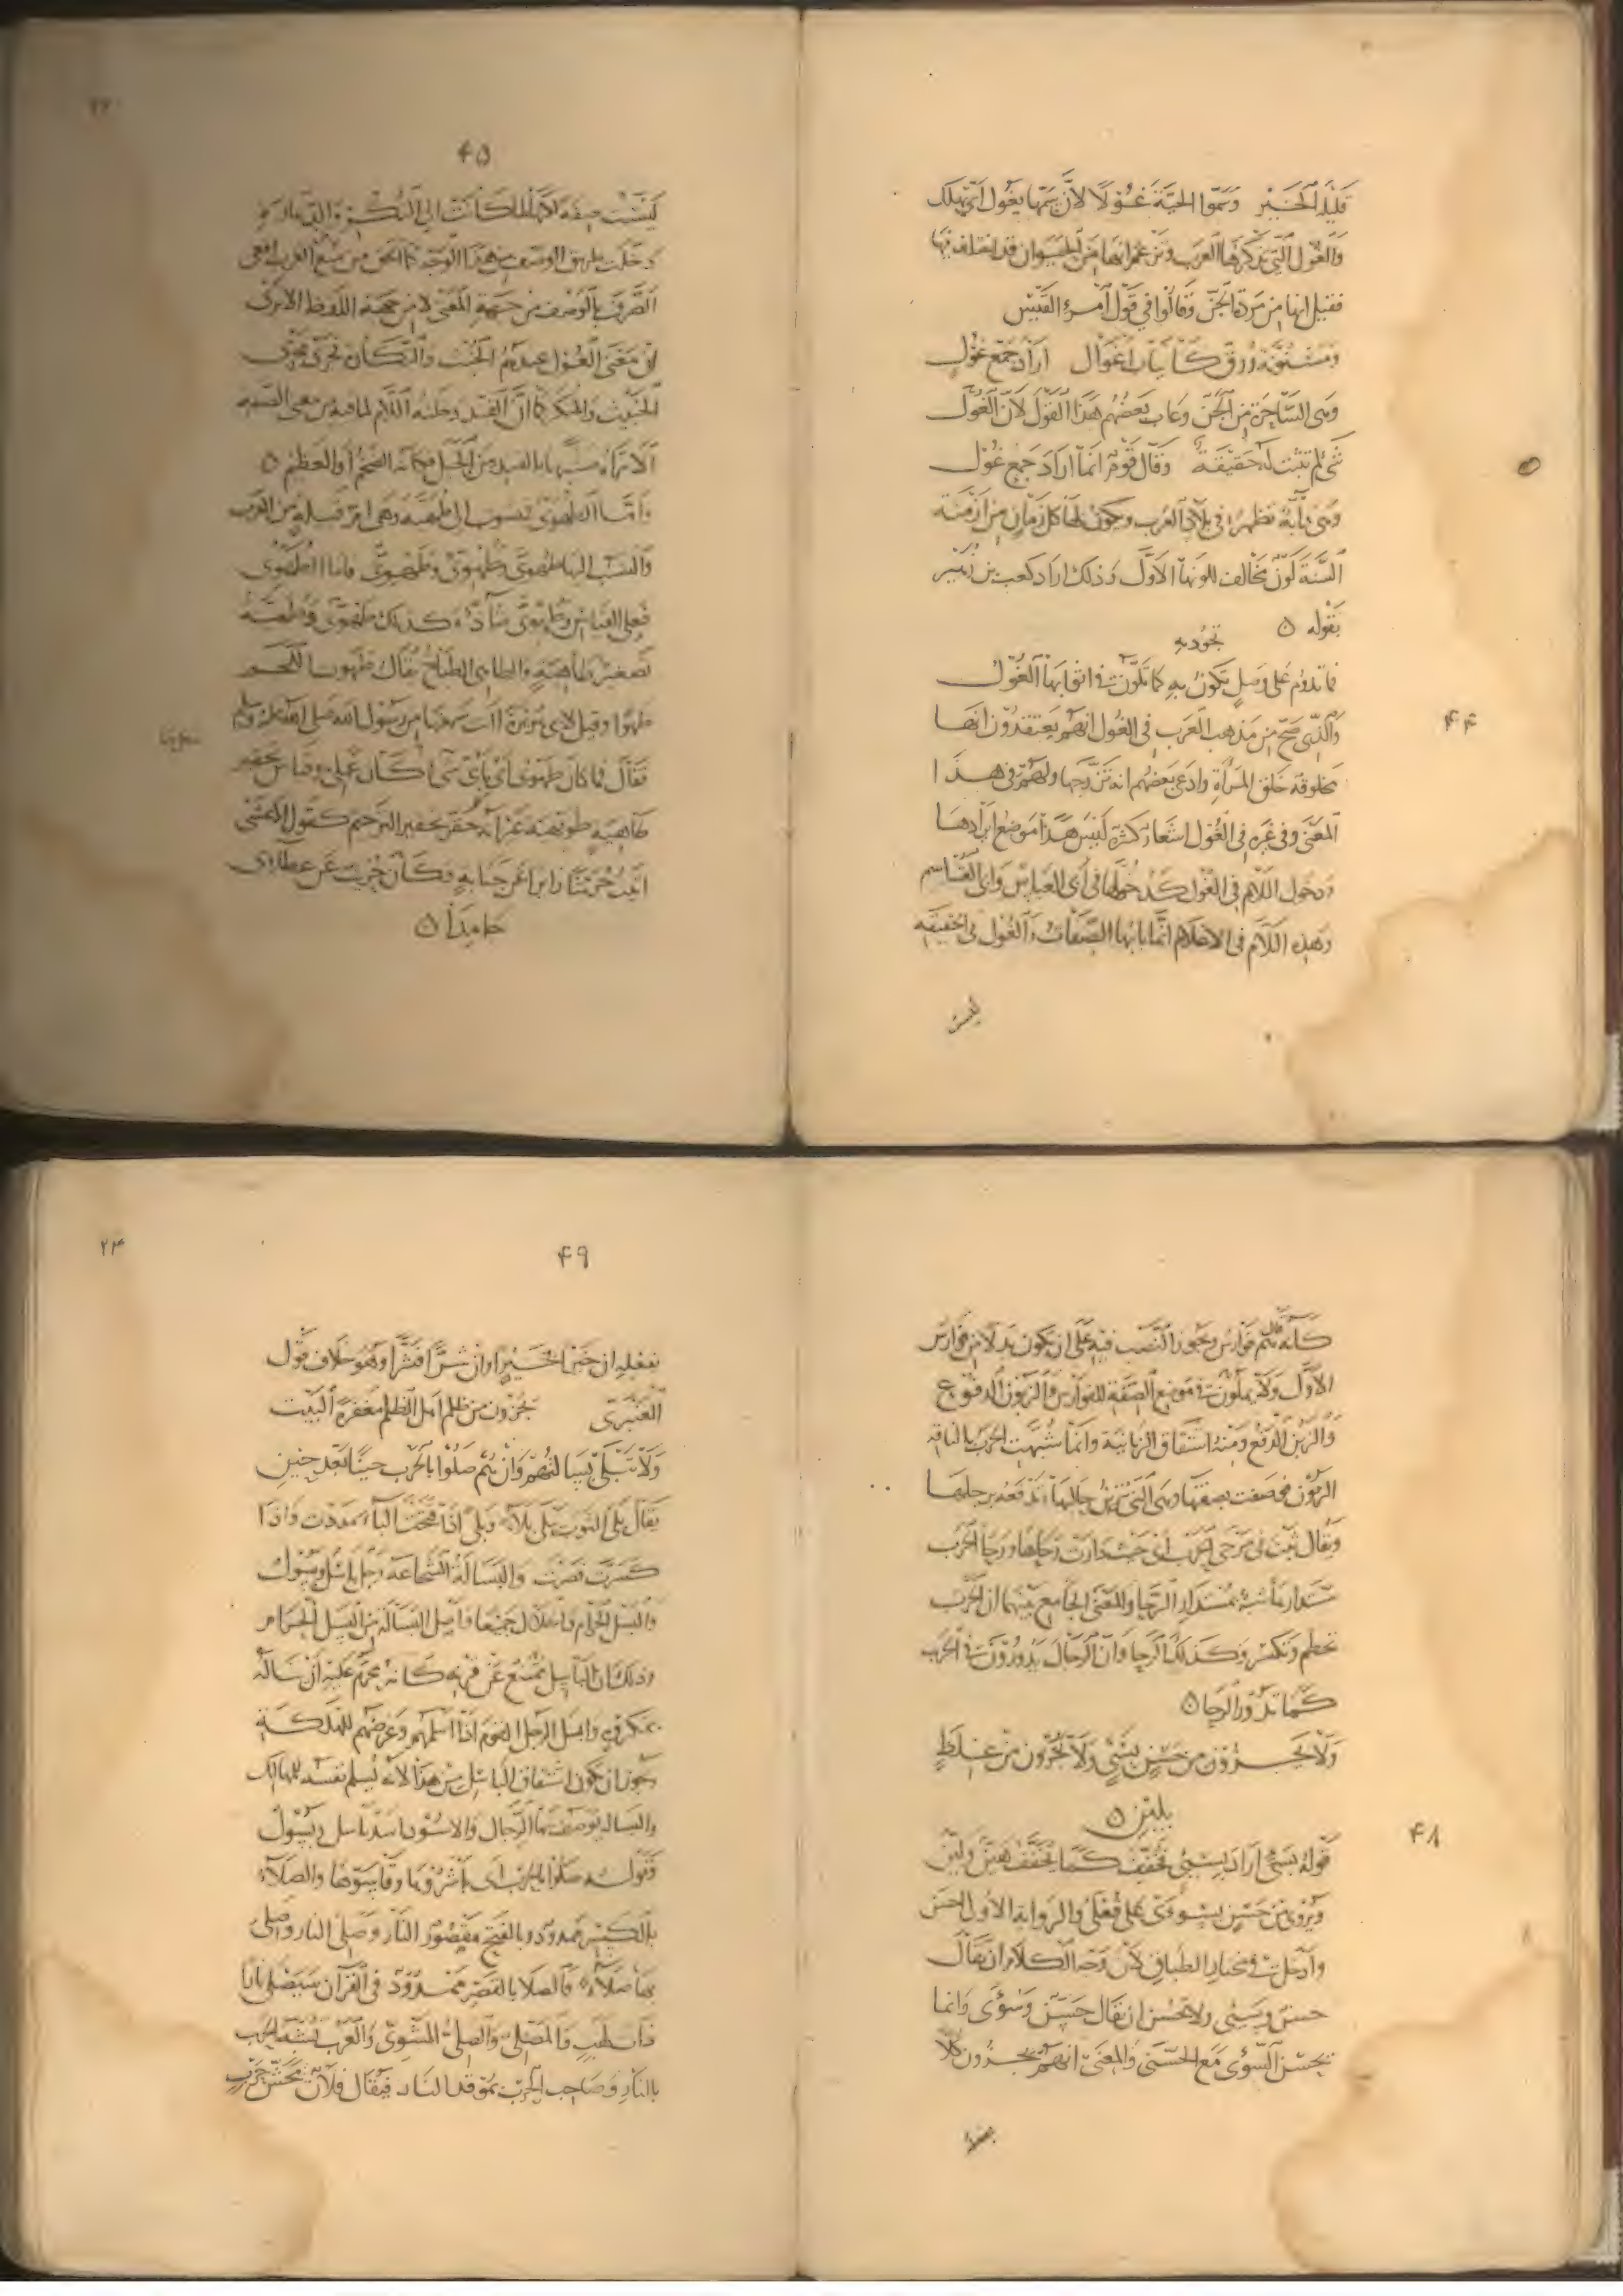 قليلة الخير وسموا الحية غولا لأن سمها يغول أي يهلك
والغول التي تذكرها العرب وتزعم انها من الحيوان قد اختلف فيها
فقيل انها من مردة الجن وقالوا في قول امرئ القيس
ومسنونة زرق كأنياب اغوال اراد جمع غول
وهي الساحرة من الجن وعاب بعضهم هذا القول لأن الغول
شئ لم تثبت له حقيقة وقال قوم انما اراد جمع غول
وهي دابة تظهر في بلاد العرب ويكون لها كل زمان من ازمنة
السنة لون مخالف للونها الأول وذلك اراد كعب بن زهير
بقوله ۵
فما تدوم على وصل تكون به كما تلون في اثوابها الغول
والذي صح من مذهب العرب في الغول انهم يعتقدون انها
مخلوقة خلق المرأة وادعى بعضهم انه تزوجها ولهم في هذا
المعنى وفي غيره في الغول اشعار كثيرة ليس هذا موضع ايرادها
ودخول اللام في الغول كدخولها في أبي العباس وابي القاسم
وهذه اللام في الاعلام انما بابها الصفات والغول في الحقيقة
ليست
۴۴
۴۵
ليست صفة لكنها لما كانت الى
دخلت طريق الوصف من هذا الوجه كما
الصرف بالوصف من جهة المعنى لا من جهة اللفظ الا ترى
ان معنى الغول عندهم الخبث والنكر فجرى مجرى
الخبيث والمنكر كما ان دخلته اللام لما فيه من معنى الصفة
الا تراه مشبها بالفند من الجبل فكأنه الضخم أو العظيم ۵
واما الطهوي فمنسوب الى طهية وهي ام قبيلة من العرب
والنسب اليها طهوي وطهوي وطهوي فاما الطهوي
فعلى القياس وطهوي شاذ وكذلك طهوي وطهية
تصغير طاهية والطاهي الطباخ يقال طهوت اللحم
طهوا وقيل لابي هريرة اانت سمعتها من رسول الله صلى الله عليه وسلم
فقال فما كان طهوي أي بأي شئ كان عملي وقياس تحقير
طاهية طويهية غير انه حقر تحقير الترخيم كقول الاعشى
اتيت حريثا زايرا عن جنابة وكان حريث عن عطاءي
جامدا ۵
كأنه قال هم فوارس ويجوز النصب فيه على ان يكون بدلا من فوارس
الأول ولا يملون في موضع الصفة للفوارس والزبون الدفوع
والزبن الدفع ومنه اشتقاق الزبانية وانما شبهت الحرب بالناقة
الزبون فوصفت بصفتها وهي التي تزبن حالبها تدفعه برجلها
ويقال ثبت في مرحى الحرب أي حيث دارت رحاها ورحا الحرب
مستدارها شبه بمستدار الرحا والمعنى الجامع بينهما ان الحرب
تحطم وتكسر وكذلك الرحا وان الرجال يدورون في الحرب
كما تدور الرحا ۵
ولا يجزون من حسن بسئ ولا يجزون من غلظ
بلين ۵
۴۸
قوله بسئ اراد بسيئ فخفف كما يخفف هين ولين
ويروى من حسن بسوءى على فعلى والرواية الاولى احسن
وادخل في مختار الطباق لأن وجه الكلام ان يقال
حسن وسيئ ولا يحسن ان يقال حسن وسوءى وانما
يحسن السوءى مع الحسنى والمعنى انهم يجزون كلا
بفعله
۲۴
۴۹
بفعله ان خيرا فخيرا وان شرا فشرا وهو خلاف قول
العنبري يجزون من ظلم اهل الظلم مغفرة البيت
ولا تبلى بسالتهم وان هم صلوا بالحرب حينا بعد حين
يقال بلي الثوب يبلى بلاء وبلى اذا فتحت الباء مددت واذا
كسرت قصرت والبسالة الشجاعة رجل باسل وبسول
والبسل الحرام والحلال جميعا واصل البسالة من البسل الحرام
وذلك ان الباسل يمتنع عن قرنه كأنه محرم عليه أن يناله
بمكروه وابسل الرجل القوم اذا اسلمهم وعرضهم للهلكة
ويجوز ان يكون اشتقاق الباسل من هذا لأنه يسلم نفسه للمهالك
والبسالة يوصف بها الرجال والاسود اسد باسل وبسول
وقوله صلوا بالحرب اى باشروها وقاسوها والصلاء
بالكسر ممدود وبالفتح مقصور النار وصلى النار وصلى
بها صلاء فالصلا بالقصر ممدود في القرآن سيصلى نارا
ذات لهب والمصلى والصلي المشوي والعرب تشبه الحرب
بالنار وصاحب الحرب بموقد النار فيقال فلان محش حرب